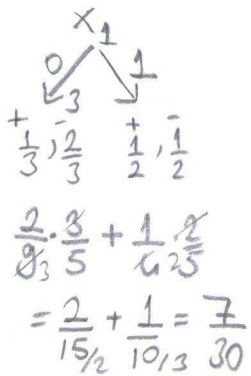 x₁
0 1
+ - 3 + -
1/3 , 2/3 1/2 , 1/2
2/9₃ · 3/5 + 1/4₂ · 2/5
= 2/15/2 + 1/10/3 = 7/30